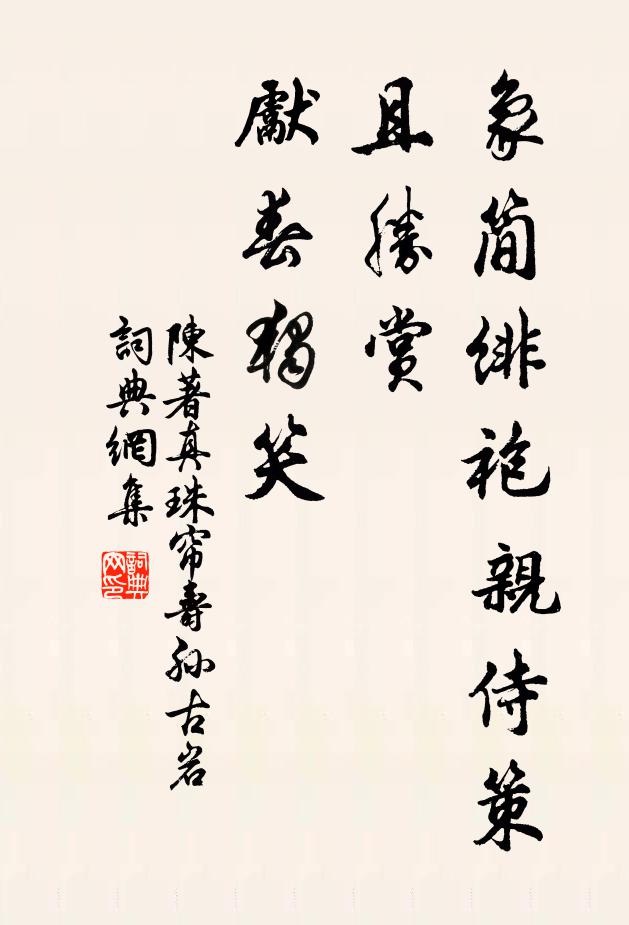 象簡緋袍親侍策
且勝賞
獻春獨笑
陳著真珠帘壽孫古岩
詞典網集
詞典网印